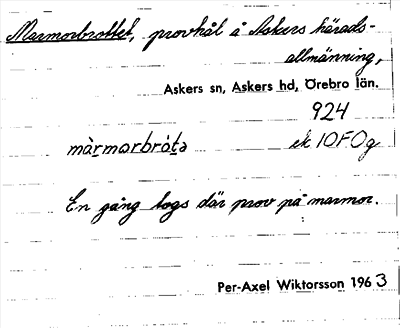 Marmorbrottet, provhål å Askers härads-
allmänning,
Askers sn, Askers hd, Örebro län.
924
màrmorbró̀tə ek 10F0g
En gång togs där prov på marmor.
Per-Axel Wiktorsson 1963